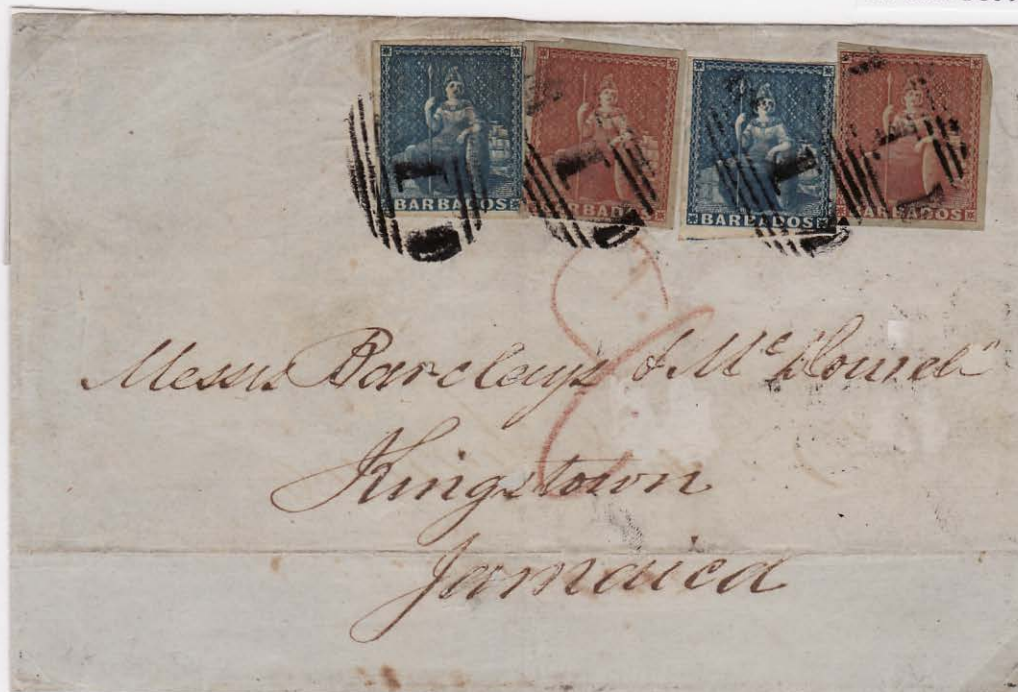 BARBADOS
BARBADOS
BARBADOS
BARBADOS
1
1
1
1
Messrs Barclays & McDowell
Kingstown
Jamaica